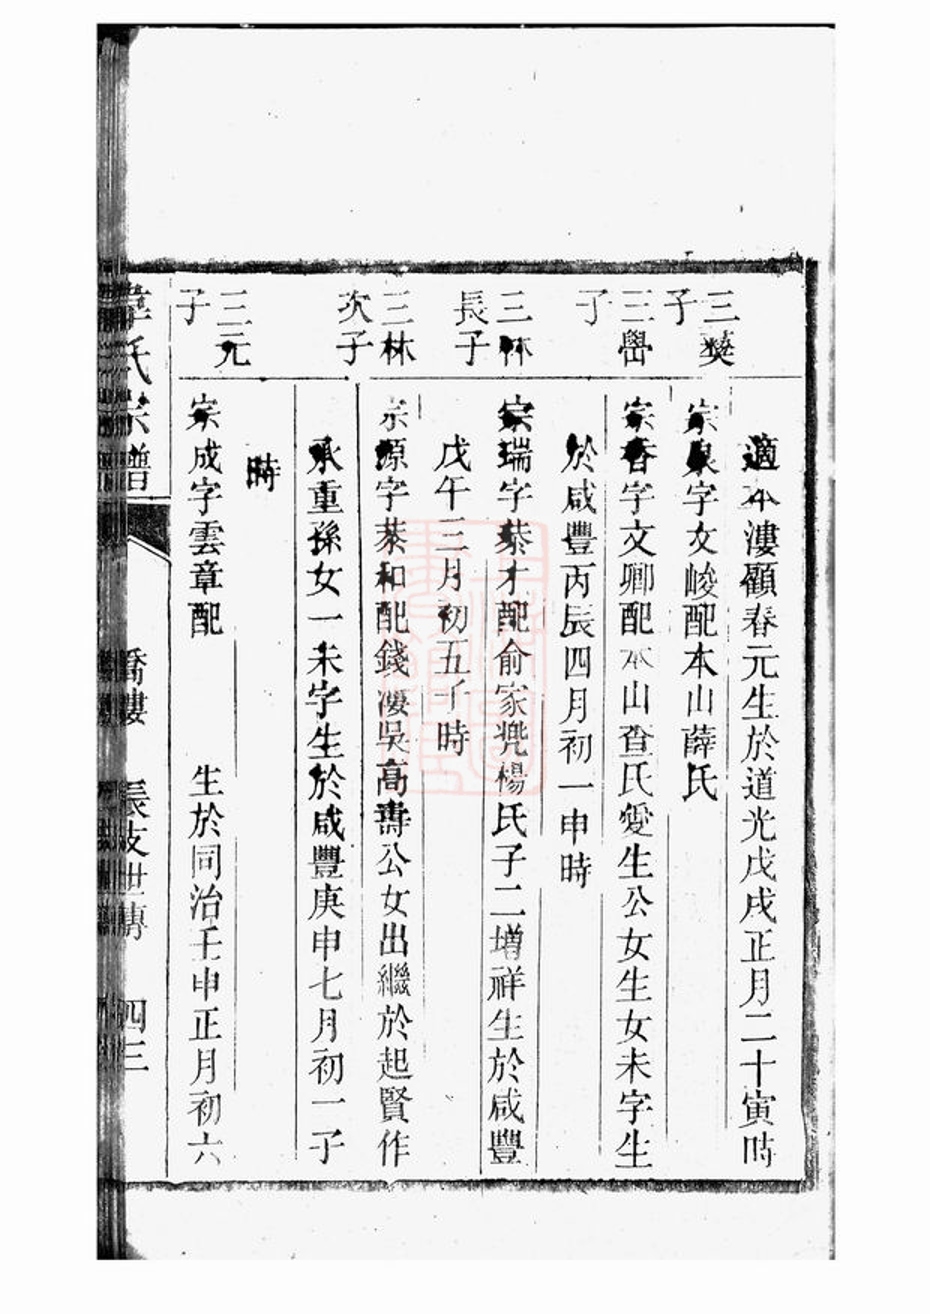 適本漊顧春元生於道光戊戌正月二十寅時
三奬子
宗泉字文峻配本山薛氏
三嚳子
宗香字文卿配本山查氏愛生公女生女未字生
於咸豐丙辰四月初一申時
三林長子
宗瑞字恭才配俞家兠楊氏子二增祥生於咸豐
戊午三月初五子時
三林次子
宗源字恭和配錢漊吳高壽公女出繼於起賢作
承重孫女一未字生於咸豐庚申七月初一子
時
三元子
宗成字雲章配 生於同治壬申正月初六
韋氏宗譜 喬漊 長支世傳 四三